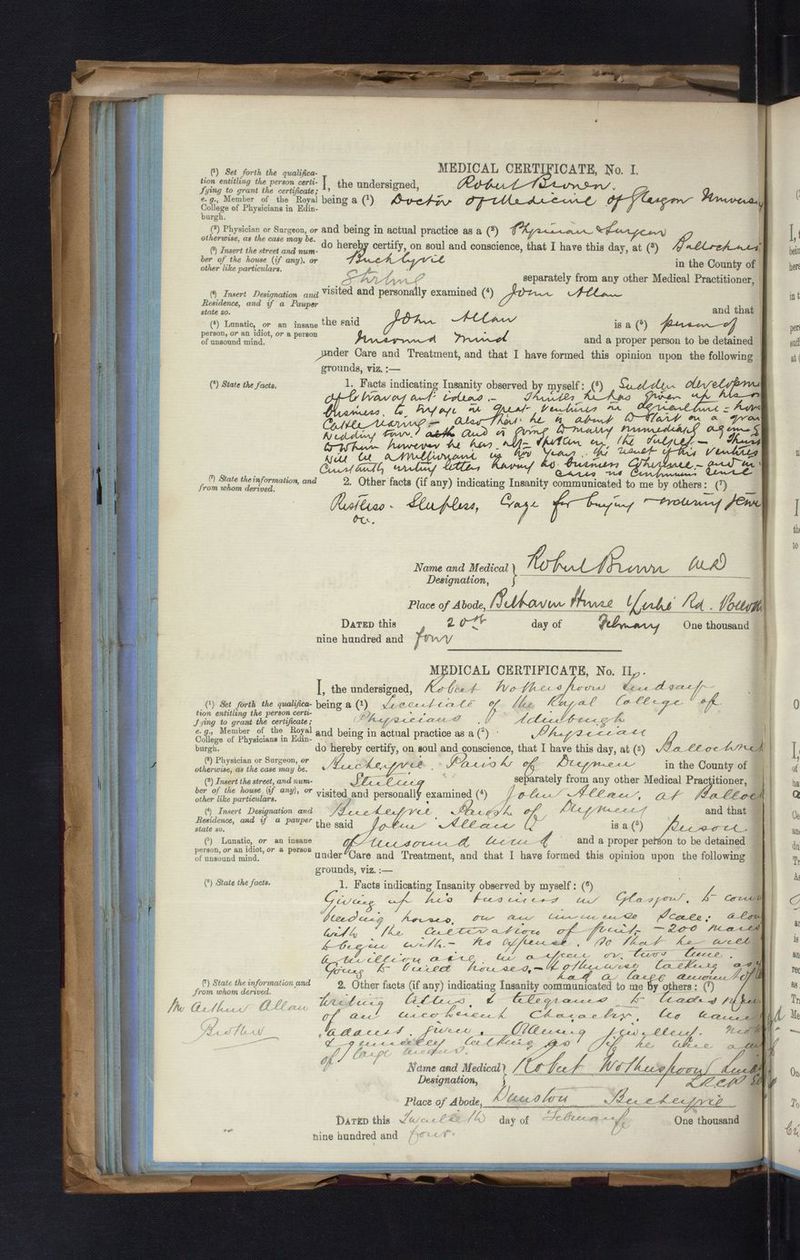 MEDICAL CERTIFICATE, No. I.
(¹) Set forth the qualifica-
tion entitling the person certi-
fying to grant the certificate;
e.g., Member of the Royal
College of Physicians in Edin-
burgh.
(²) Physician or Surgeon, or
otherwise, as the case may be.
(³) Insert the street and num-
ber of the house (if any), or
other like particulars.
(⁴) Insert Designation and
Residence, and if a Pauper
state so.
(⁵) Lunatic, or an insane
person, or an idiot, or a person
of unsound mind.
(⁶) State the facts.
(⁷) State the information, and
from whom derived.
I, the undersigned, Robert Brown.
being a (¹) Doctor of Medicine of Glasgow
and being in actual practice as a (²) Physician & Surgeon
do hereby certify, on soul and conscience, that I have this day, at (³)
Buchlyvie in the County of
Stirling separately from any other Medical Practitioner,
visited and personally examined (⁴) John Allan
and that
the said John Allan is a (⁵) person of
unsound mind and a proper person to be detained
under Care and Treatment, and that I have formed this opinion upon the following
grounds, viz.:—
1. Facts indicating Insanity observed by myself: (⁶) Sudden
of ideas.— Thinks he has given up his
business, to engage in great ventures in agriculture = 
Cattle rearing — also that he is about to start on a
wedding tour and is going to marry immediately
to whom however he has not spoken on the subject —
will be a millionaire in two years, the result of his ventures
Constantly writing letters having no business — and in
2. Other facts (if any) indicating Insanity communicated to me by others: (⁷)
Restless. Sleepless, Craze for buying
&c.
Name and Medical } Robert Brown MD
Designation,
Place of Abode, Belhaven House Rd.
DATED this 20th day of February One thousand
nine hundred and four
MEDICAL CERTIFICATE, No. II.
(¹) Set forth the qualifica-
tion entitling the person certi-
fying to grant the certificate;
e.g., Member of the Royal
College of Physicians in Edin-
burgh.
(²) Physician or Surgeon, or
otherwise, as the case may be.
(³) Insert the street, and num-
ber of the house (if any), or
other like particulars.
(⁴) Insert Designation and
Residence, and if a pauper
state so.
(⁵) Lunatic, or an insane
person, or an idiot, or a person
of unsound mind.
(⁶) State the facts.
(⁷) State the information and
from whom derived.
Mr Arthur Allan
Brother
I, the undersigned, Robert Wotherspoon Lindsay
being a (¹) Licentiate of the Royal College of
Physicians Edinburgh
and being in actual practice as a (²) Physician
do hereby certify, on soul and conscience, that I have this day, at (³)
Buchlyvie Parish of Drymen in the County of
Stirling separately from any other Medical Practitioner,
visited and personally examined (⁴) John Allan, at
Buchlyvie Parish of Drymen and that
the said John Allan is a (⁵) person
of unsound mind and a proper person to be detained
under Care and Treatment, and that I have formed this opinion upon the following
grounds, viz.:—
1. Facts indicating Insanity observed by myself: (⁶)
Giving up his business in Glasgow, to
breeding horses, on an immense scale: along
with the cultivation of fruit — 200 mares
to begin with. — no expense. So that he will
be millionaire in a year or two's time.
Going to build houses, — & otherwise talking as if
had a large amount of
2. Other facts (if any) indicating Insanity communicated to me by others: (⁷)
Writing letters & telegrams to
of an incoherent character, no name
address given. Ordering jewellery.
& generally talking as if he were a
of large means.
Name and Medical } Robert Wotherspoon
Designation, LRCP
Place of Abode, Buchlyvie
DATED this Twentieth day of February One thousand
nine hundred and four.